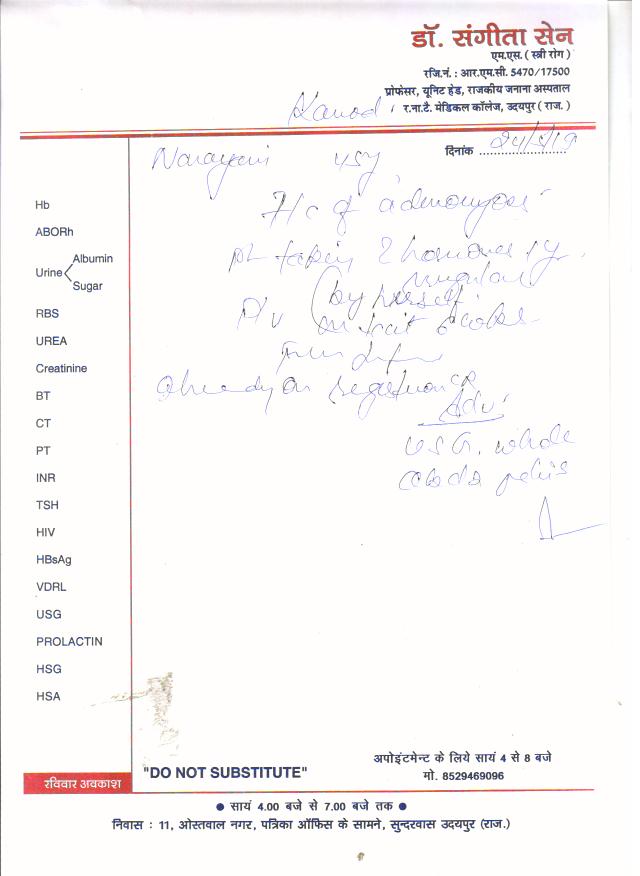 डॉ. संगीता सेन
एम.एस. ( स्त्री रोग )
रजि.नं. : आर.एम.सी. 5470/17500
प्रोफेसर, यूनिट हेड, राजकीय जनाना अस्पताल
र.ना.टै. मेडिकल कॉलेज, उदयपुर ( राज. )
Kanod
दिनांक 24/5/19
Narayani 45y
H/c of adenomyosis
pt taking
irregular
(by herself.
P/v
Already on
Adv:
USG. whole
abdo pelvis
Hb
ABORh
Urine Albumin
Sugar
RBS
UREA
Creatinine
BT
CT
PT
INR
TSH
HIV
HBsAg
VDRL
USG
PROLACTIN
HSG
HSA
रविवार अवकाश
"DO NOT SUBSTITUTE"
अपोइंटमेन्ट के लिये सायं 4 से 8 बजे
मो. 8529469096
● सायं 4.00 बजे से 7.00 बजे तक ●
निवास : 11, ओस्तवाल नगर, पत्रिका ऑफिस के सामने, सुन्दरवास उदयपुर (राज.)